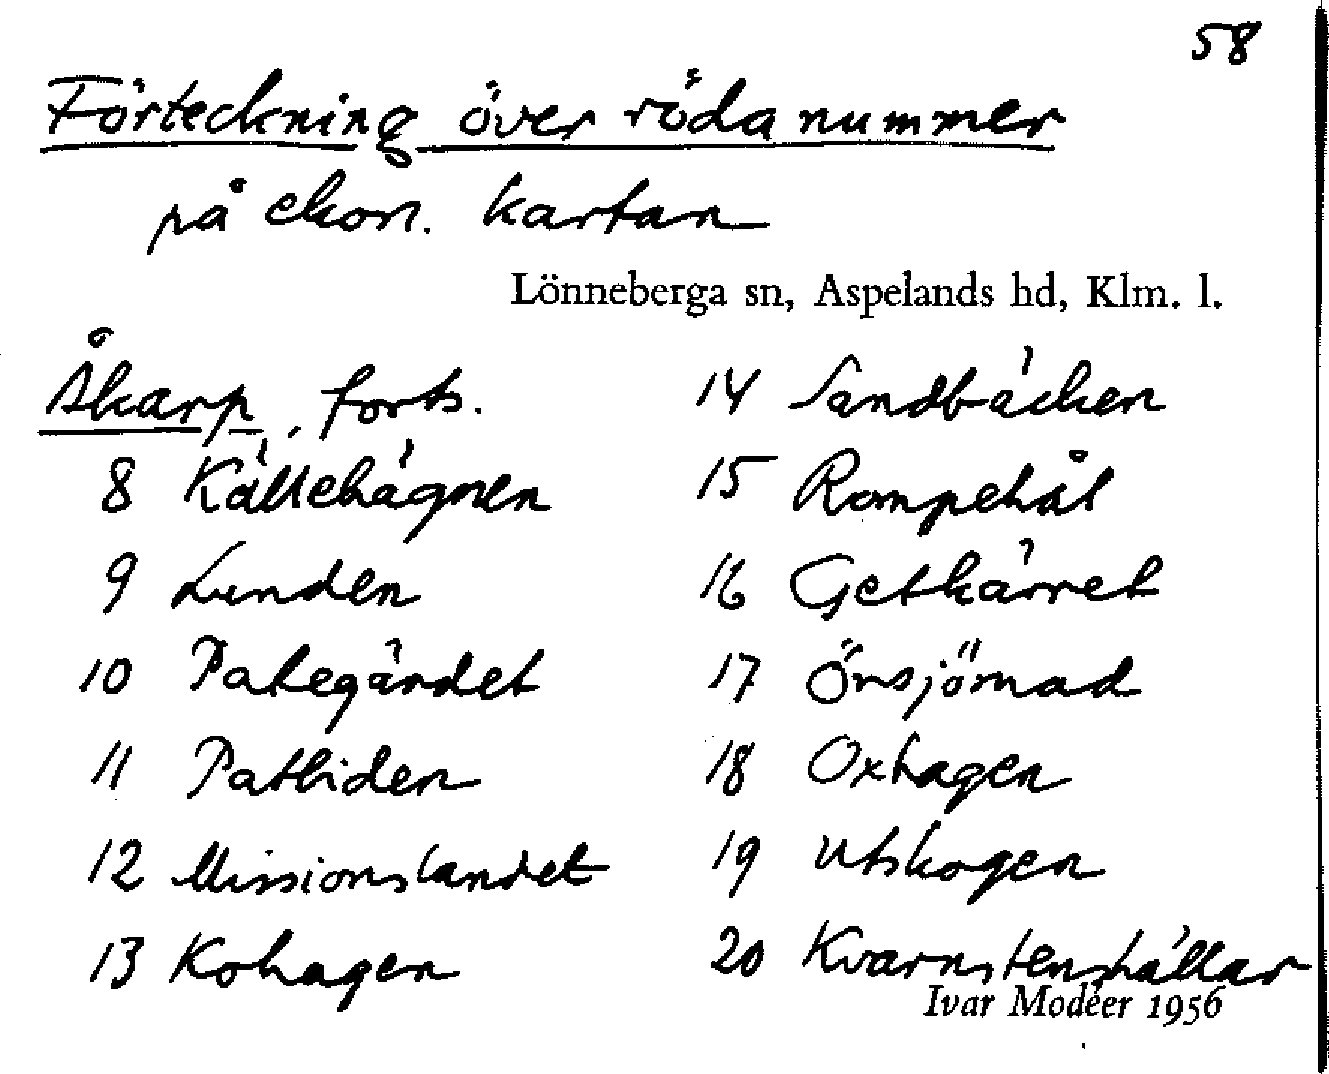 58
Förteckning över röda nummer
på ekon. kartan
Lönneberga sn, Aspelands hd, Klm. l.
Åkarp, forts.
8 Källehägnen
9 Lunden
10 Pakegärdet
11 Patbiden
12 Missionslandet
13 Kohagen
14 Sandbäcken
15 Rompehål
16 Getkärret
17 Örsjömad
18 Oxhagen
19 Utskogen
20 Kvarnstenshällar
Ivar Modéer 1956